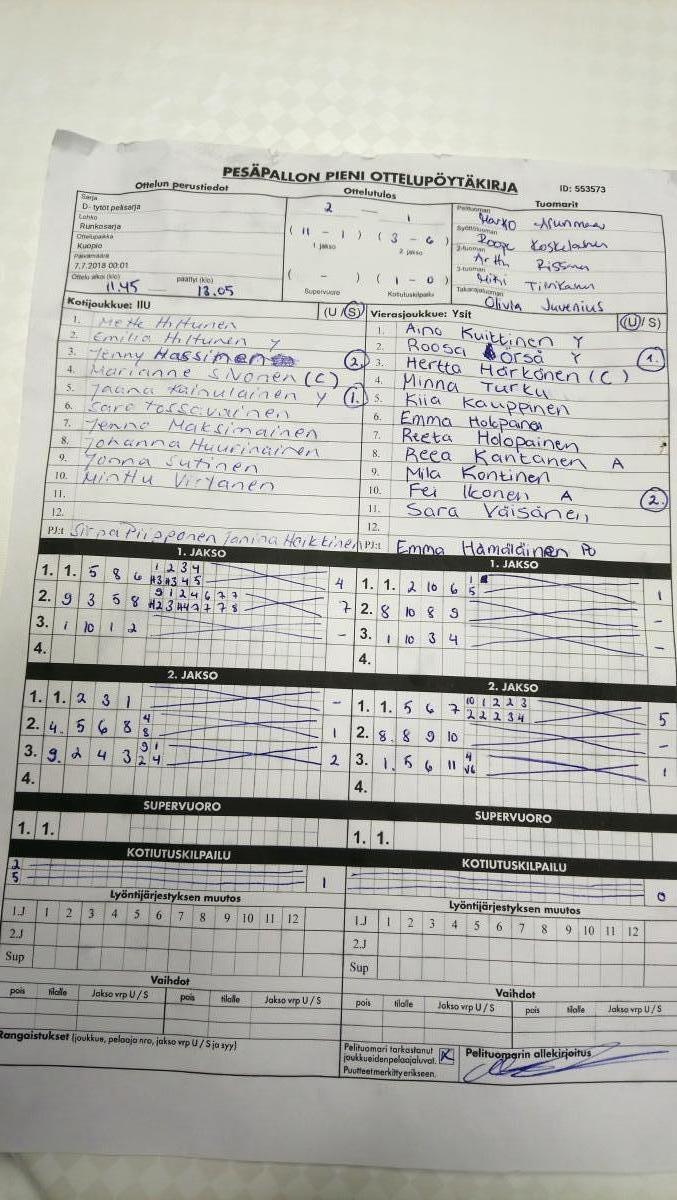 PESÄPALLON PIENI OTTELUPÖYTÄKIRJA
ID: 553573
Ottelun perustiedot
Ottelutulos
Tuomarit
Sarja
D- tytöt pelisarja
Lohko
Runkosarja
Ottelupaikka
Kuopio
Päivämäärä
7.7.2018 00:01
Ottelu alkoi (klo) päättyi (klo)
11.45 13.05
2 — 1
( 11 - 1 ) ( 3 - 6 )
1. jakso 2. jakso
( - ) ( 1 - 0 )
Supervuoro Kotiutuskilpailu
Pelituomari
Marko Asunmaa
Syöttötuomari
Roope Koskelainen
2-tuomari
Arttu Rissanen
3-tuomari
Miti
Takarajatuomari
Olivia Juvenius
Kotijoukkue: IIU (U / S)
1. Mette Hiltunen
2. Emilia Hiltunen Y
3. Jenny Hassinen 2.
4. Marianne Sivonen (C)
5. Jaana Kainulainen Y 1.
6. Saro Tossavainen
7. Jenna Maksimainen
8. Johanna Huurinainen
9. Jonna Sutinen
10. Minttu Virtanen
11.
12.
PJ:t Sirpa Piipponen Janina Heikkinen
Vierasjoukkue: Ysit (U / S)
1. Aino Kuittinen Y
2. Roosa Börså Y 1.
3. Hertta Härkönen (C)
4. Minna Turku
5. Kiia Kauppinen
6. Emma Holopainen
7. Reeta Holopainen
8. Reea Kantanen A
9. Mila Kontinen
10. Fei Ikonen A 2.
11. Sara Väisänen
12.
PJ:t Emma Hämäläinen PO
1. JAKSO
1. 1. 5 8 6 1 2 3 4 4
2. 9 3 5 8 9 1 2 4 6 7 7 7
3. 1 10 1 2 -
4.
1. JAKSO
1. 1. 2 10 6 1 5 1
2. 8 10 8 9 -
3. 1 10 3 4 -
4.
2. JAKSO
1. 1. 2 3 1 -
2. 4. 5 6 8 4 8 1
3. 9. 2 4 3 9 1 2 4 2
4.
2. JAKSO
1. 1. 5 6 7 10 1 2 2 3 2 2 2 3 4 5
2. 8. 8 9 10 -
3. 1. 5 6 11 4 V6 1
4.
SUPERVUORO
1. 1.
SUPERVUORO
1. 1.
KOTIUTUSKILPAILU
2
5 1
KOTIUTUSKILPAILU
0
Lyöntijärjestyksen muutos
1.J 1 2 3 4 5 6 7 8 9 10 11 12
2.J
Sup
Lyöntijärjestyksen muutos
1.J 1 2 3 4 5 6 7 8 9 10 11 12
2.J
Sup
Vaihdot
pois tilalle Jakso vrp U / S pois tilalle Jakso vrp U / S
Vaihdot
pois tilalle Jakso vrp U / S pois tilalle Jakso vrp U / S
Rangaistukset (joukkue, pelaaja nro, jakso vrp U / S ja syy)
Pelituomari tarkastanut
joukkueiden pelaajaluvat. X
Puutteet merkitty erikseen.
Pelituomarin allekirjoitus